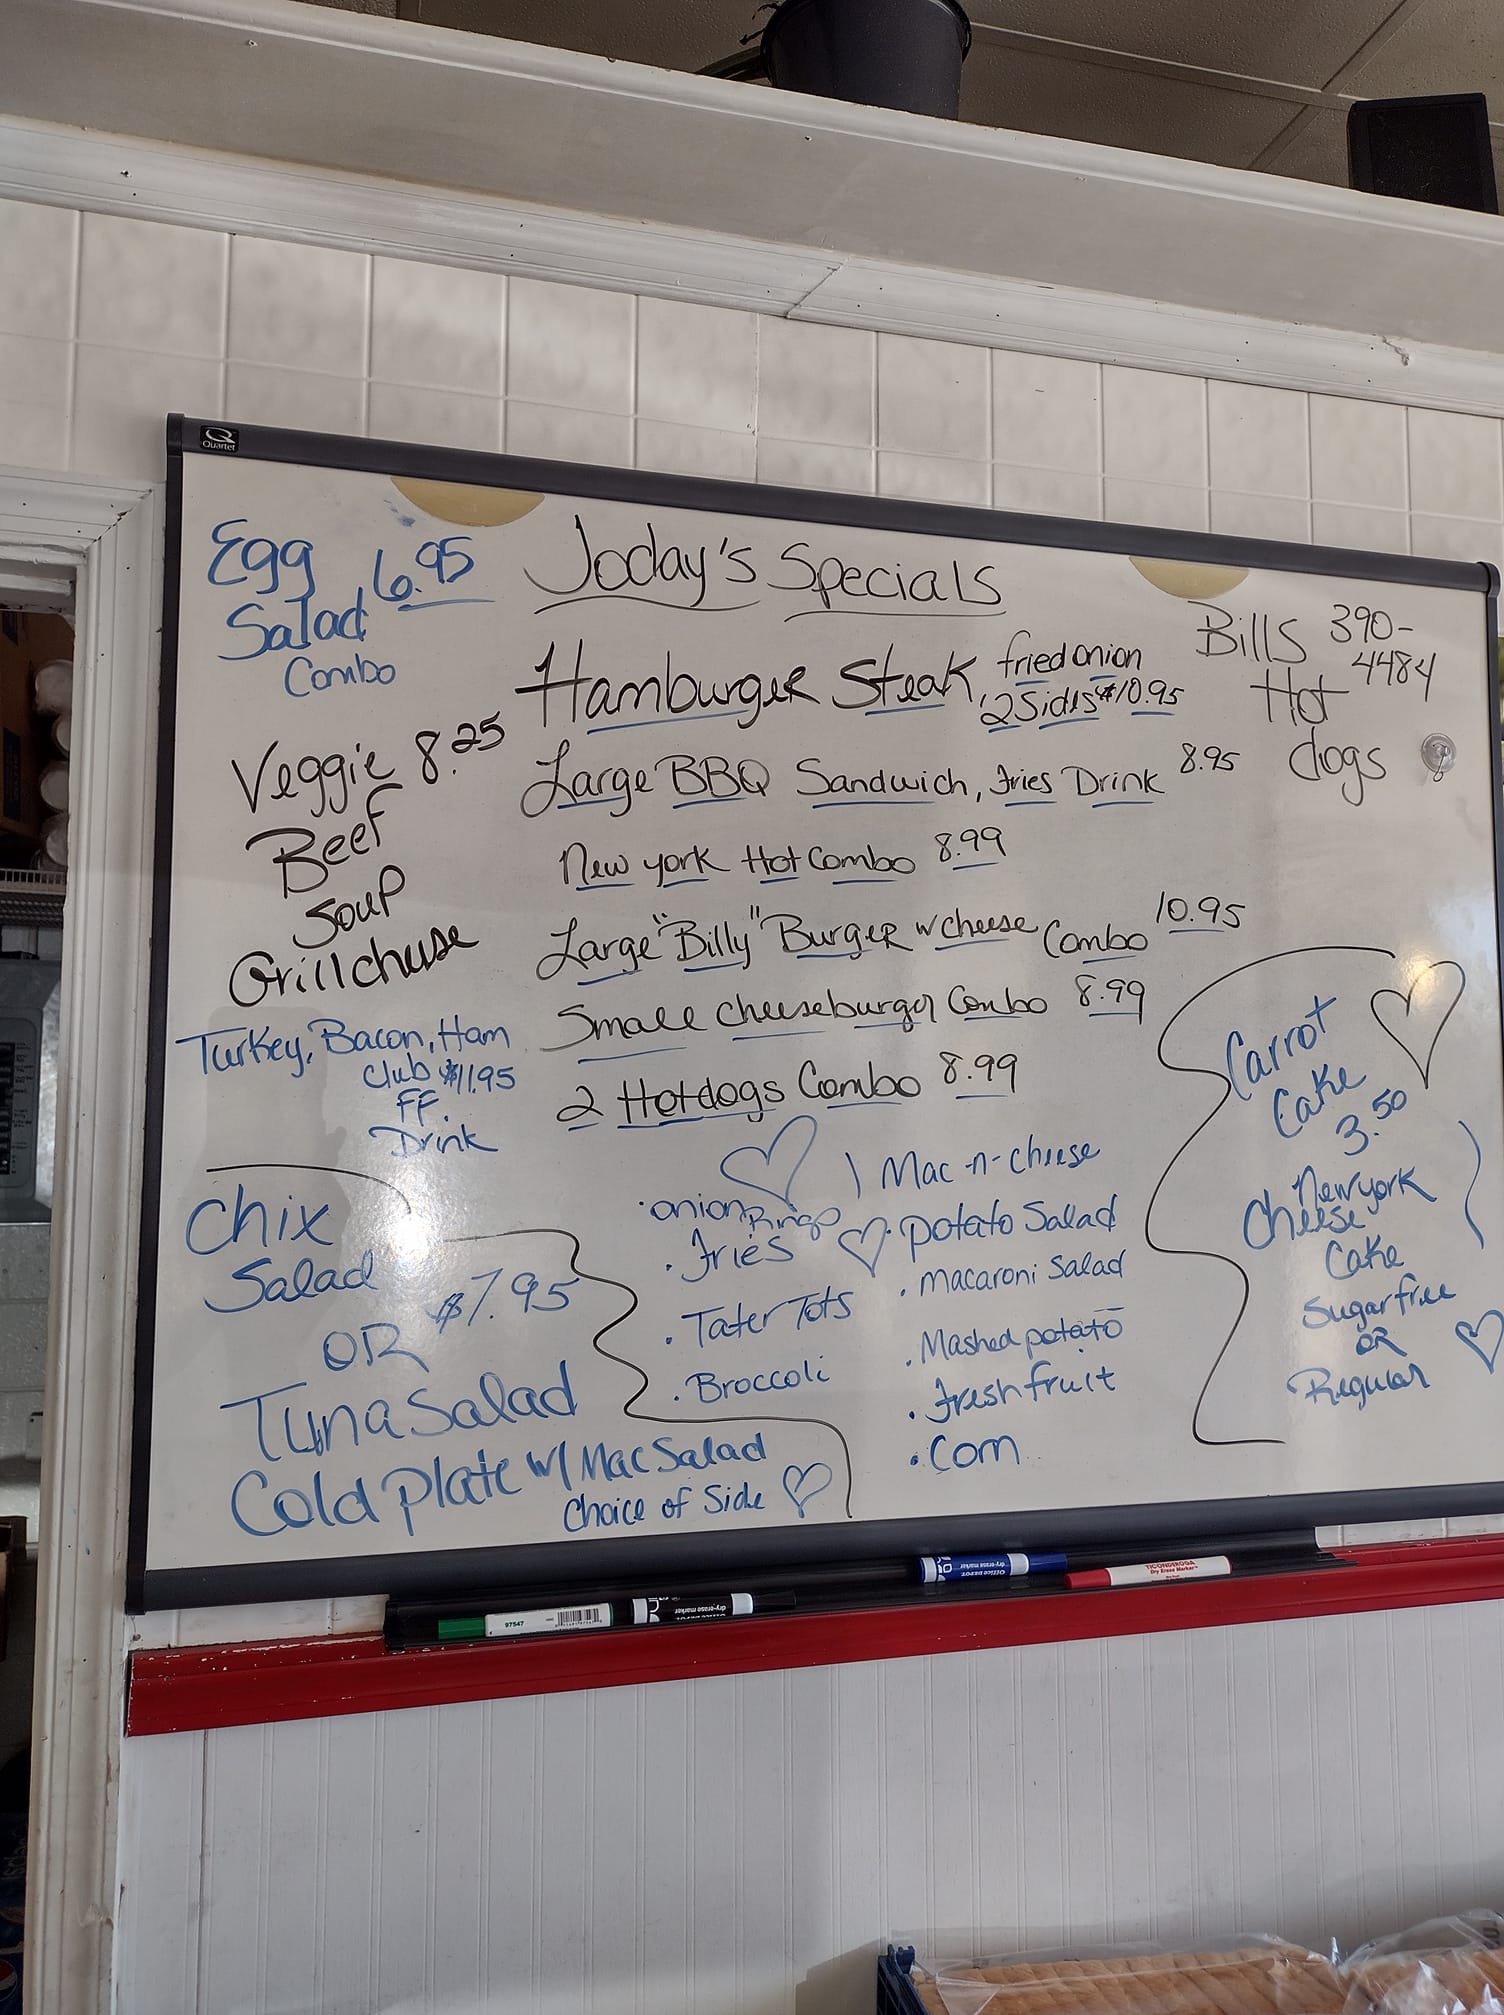 Quartet
Egg 6.95
Salad
Combo
Veggie 8.25
Beef
Soup
Grill cheese
Turkey, Bacon, Ham
Club $11.95
FF.
Drink
Chix
Salad
$7.95
OR
Tuna Salad
Cold Plate w/ Mac Salad
Choice of Side
Today's Specials
Hamburger Steak, fried onion
2 Sides $10.95
Large BBQ Sandwich, Fries Drink 8.95
New york Hot Combo 8.99
Large "Billy" Burger w cheese Combo 10.95
Small Cheeseburger Combo 8.99
2 Hotdogs Combo 8.99
• onion Rings
• Fries
• Tater Tots
• Broccoli
Mac-n-cheese
• potato Salad
• macaroni Salad
• Mashed potato
• Fresh fruit
• Corn
Bills 390-
4484
Hot
dogs
Carrot
Cake
3.50
New york
Cheese
Cake
Sugar free
OR
Regular
dry-erase marker
OFFICE DEPOT
TICONDEROGA
Dry Erase Marker
97547
dry-erase marker